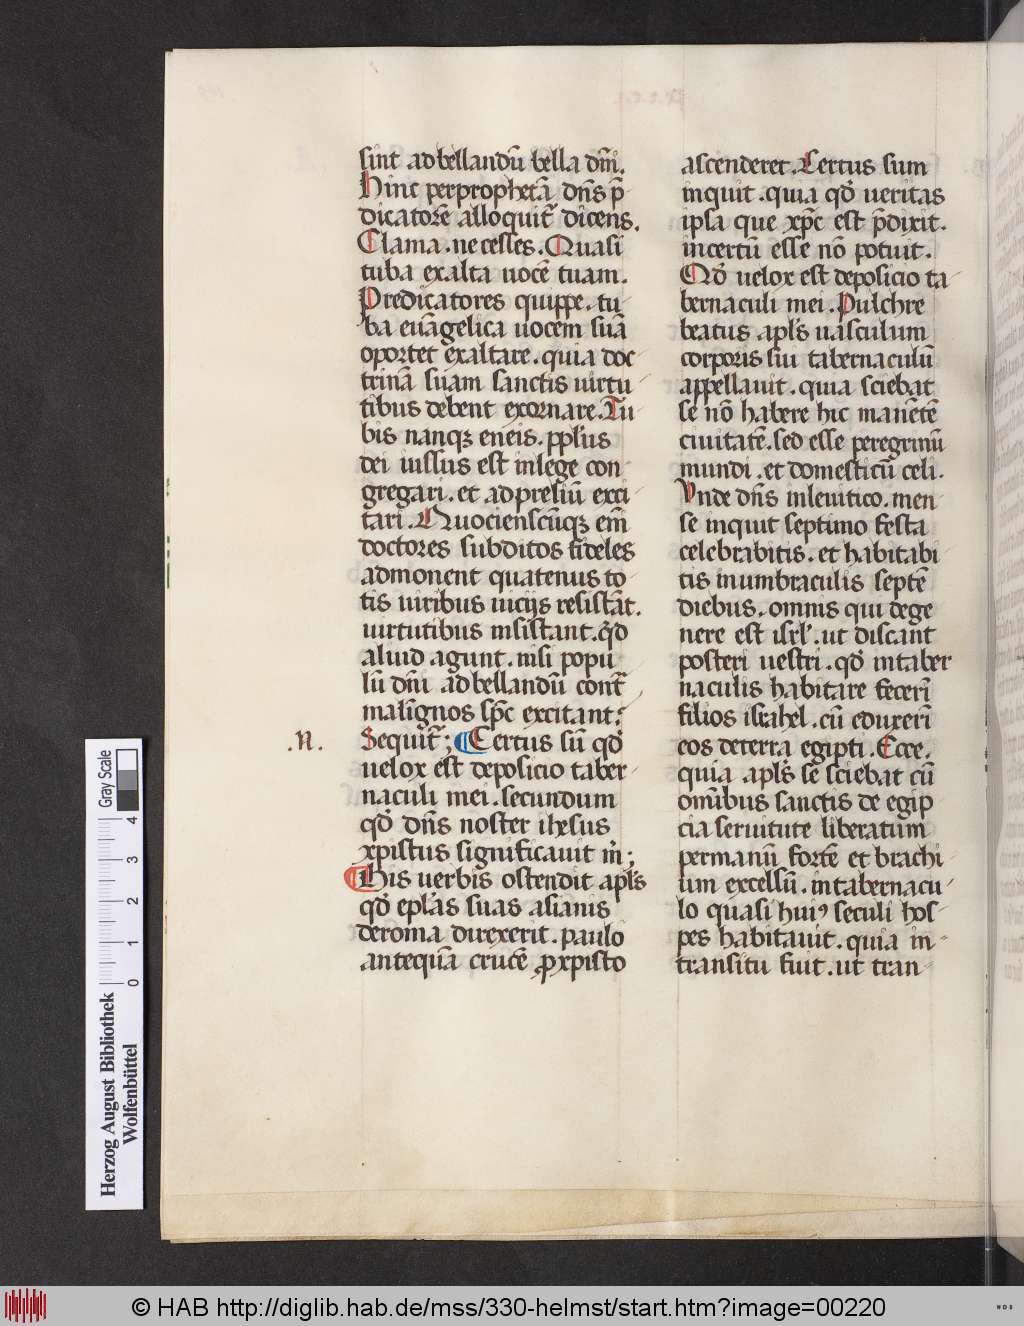 sint adbellandū bella dm̄i.
Hinc perprophetā dn̄s p̄
dicatorē alloquit᷑ dicens.
Clama. ne cesses. Quasi
tuba exalta uocē tuam.
Predicatores quippe. tu
ba euāgelica uocem suā
oportet exaltare. quia doc
trinā suam sanctis uirtu
tibus debent exornare. Tu
bis nanqꝫ eneis. ppl's
dei iussus est inlege con
gregari. et adpreliū exci
tari. Quociensciūqꝫ em̄
doctores subditos fideles
admonent quatenus to
tis uiribus uicijs resistāt.
uirtutibus insistant. qͥd
aliud agunt. nisi popu
lū dn̄i adbellandū cont᷑
malignos sp̄c excitant?
.N. Sequit᷑; Certus sū qđ
uelox est deposicio taber
naculi mei. secundum
qđ dn̄s noster ihesus
xpistus significauit m̄;
His uerbis ostendit apl's
qđ epl'as suas asianis
deroma direxerit. paulo
antequā crucē ꝓxpisto
ascenderet. Certus sum
inquit. quia qđ ueritas
ipsa que xp̄c est p̄dixit.
incertū esse nō potuit.
Qđ uelox est deposicio ta
bernaculi mei. Pulchre
beatus apl's uasculum
corporis sui tabernaculū
appellauit. quia sciebat
se nō habere hic manētē
ciuitatē. sed esse peregrinū
mundi. et domesticū celi.
Vnde dn̄s inleuitico. men
se inquit septimo festa
celebrabitis. et habitabi
tis inumbraculis septē
diebus. omnis qui dege
nere est isrl'. ut discant
posteri uestri. qđ intaber
naculis habitare fecerī
filios israhel. cū eduxerī
eos deterra egipti. Ecce.
quia apl's se sciebat cū
omībus sanctis de egip
cia seruitute liberatum
permanū fortē et brachi
um excelsū. intabernacu
lo quasi huiꝰ seculi hos
pes habitauit. quia in
transitu fuit. ut tran
Herzog August Bibliothek
Wolfenbüttel
0 1 2 3 4
Gray Scale
© HAB http://diglib.hab.de/mss/330-helmst/start.htm?image=00220